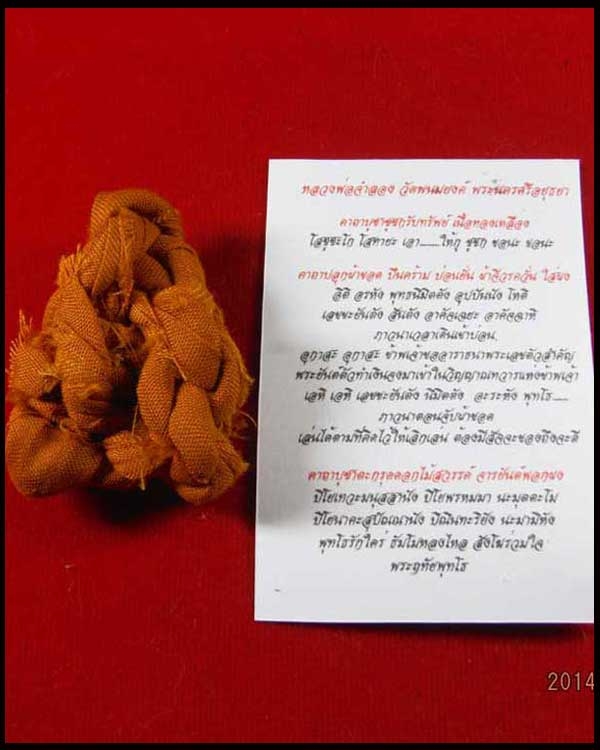 หลวงพ่อจำลอง วัดพนมยงค์ พระนครศรีอยุธยา
คาถาบูชาชูชกรับทรัพย์ เนื้อทองเหลือง
โสชูชะโก โสทายะ เอา......ให้กู ชูชก ชอนะ ชอนะ
คาถาปลุกผ้าขอด ปืนคร้าม บ่อนยั่น ผ้าจีวรควั่น ใส่ผง
อิติ อรหัง พุทธนิมิตตัง อุปปันนัง โหติ
เลขะยันตัง สันตัง อาคัจเฉยะ อาคัจฉาหิ
ภาวนาเวลาเดินเข้าบ่อน
อุกาสะ อุกาสะ ข้าพเจ้าขออาราธนาพระเลขตัวสำคัญ
พระยันต์ตัวทำเงินจงมาเข้าในวิญญาณทวารแห่งข้าพเจ้า
เอหิ เอหิ เลขะยันตัง นิมิตตัง อะระหัง พุทโธ......
ภาวนาตอนจับผ้าขอด
เล่นได้ตามที่คิดไว้ให้เลิกเลน ต้องมีสัจจะของถึงจะดี
คาถาบูชาตะกรุดดอกไม้สวรรค์ จารยันต์พอกผง
ปิโยเทวะมนุสสานัง ปิโยพรหมมา นะมุตตะโม
ปิโยนาคะสุปัณณานัง ปิณินทะริยัง นะมามิหัง
พุทโธรักใคร่ ธัมโมหลงไหล สังโฆร่วมใจ
พระฤทัยพุทโธ
2014